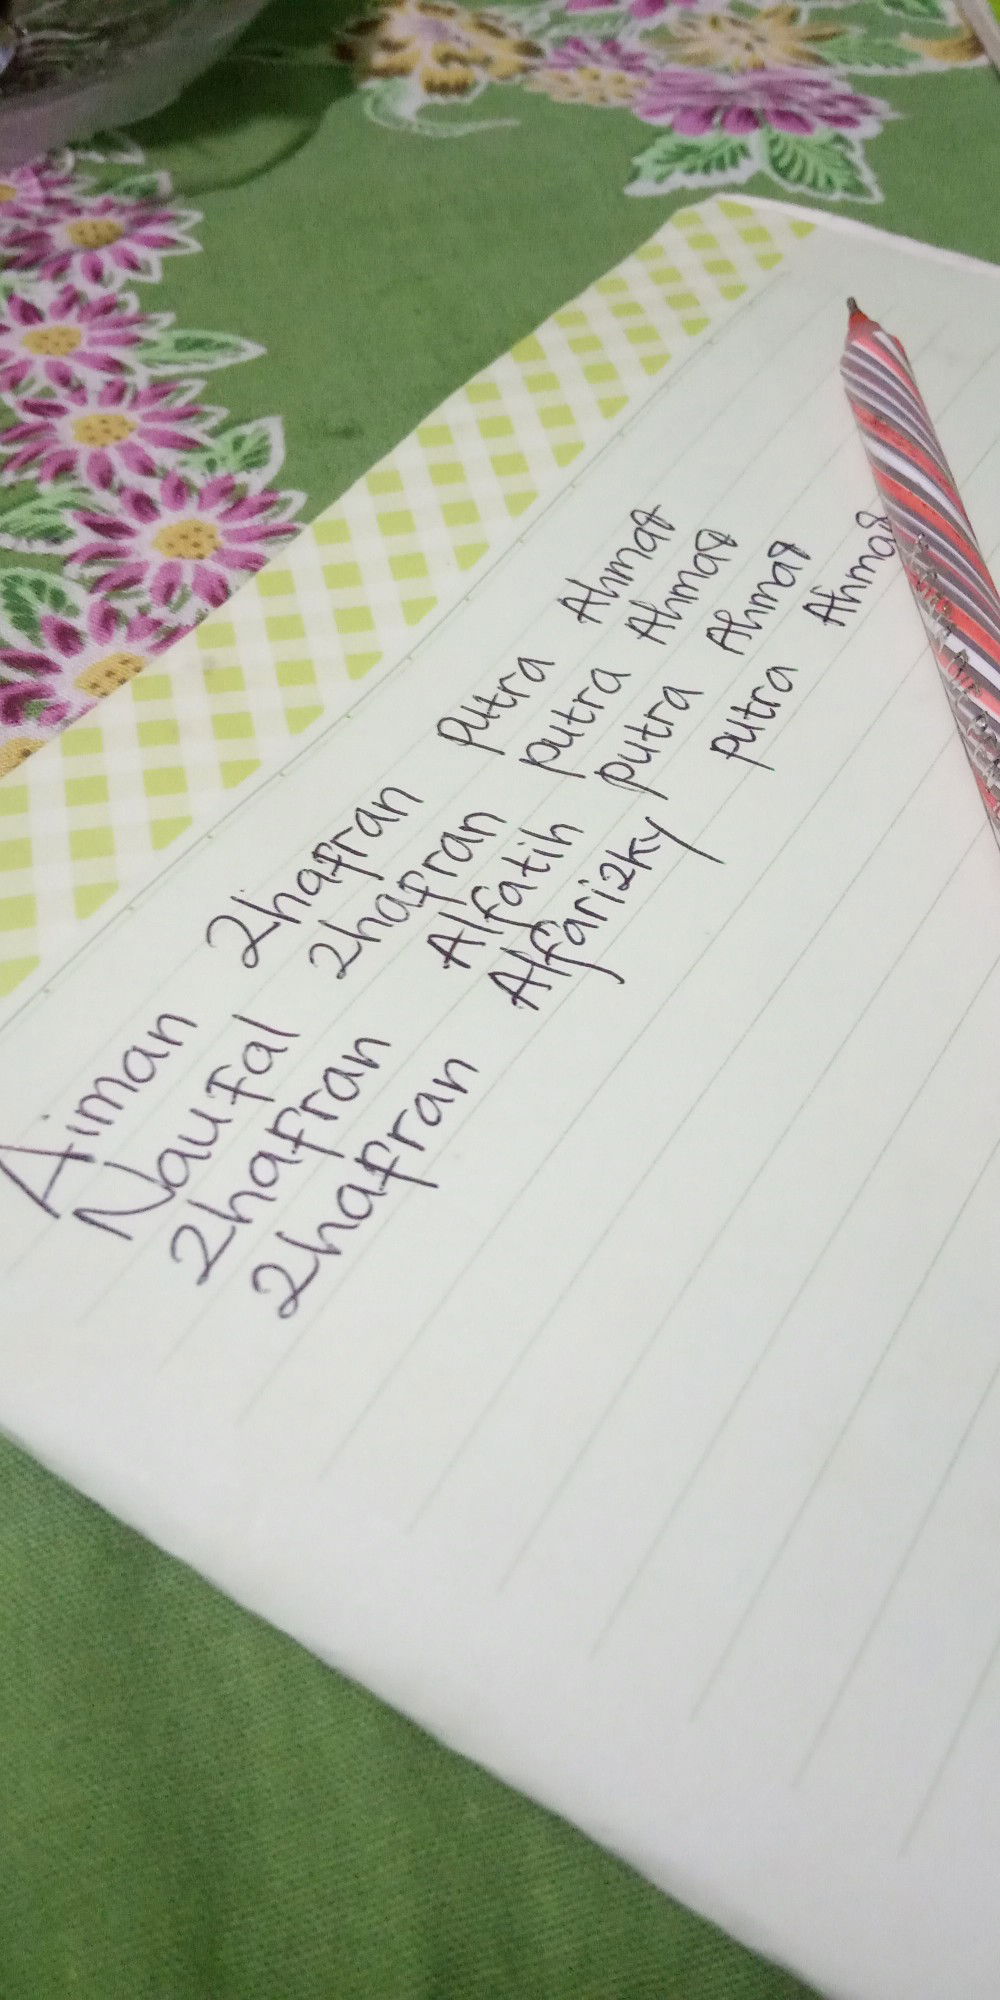 Aiman Zhafran putra Ahmad
Naufal Zhafran putra Ahmad
Zhafran Alfatih putra Ahmad
Zhafran Alfarizky putra Ahmad